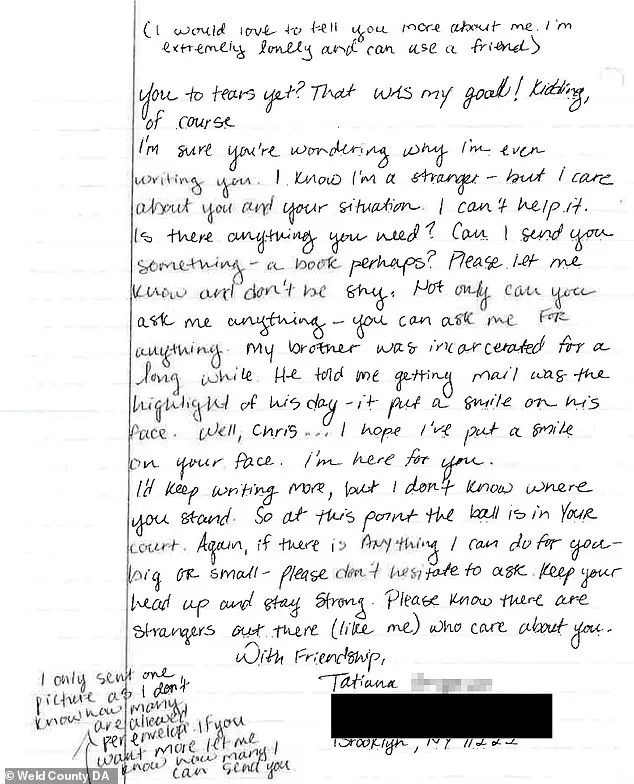 (I would love to tell you more about me. I'm
extremely lonely and can use a friend)
you to tears yet? That was my goal! Kidding,
of course
I'm sure you're wondering why I'm even
writing you. I know I'm a stranger - but I care
about you and your situation. I can't help it.
Is there anything you need? Can I send you
something - a book perhaps? Please let me
know and don't be shy. Not only can you
ask me anything - you can ask me FOR
anything. My brother was incarcerated for a
long while. He told me getting mail was the
highlight of his day - it put a smile on his
face. Well, Chris... I hope I've put a smile
on your face. I'm here for you.
I'd keep writing more, but I don't know where
you stand. So at this point the ball is in Your
court. Again, if there is Anything I can do for you -
big or small - please don't hesitate to ask. Keep your
head up and stay strong. Please know there are
strangers out there (like me) who care about you.
With Friendship,
Tatiana
Brooklyn, NY
I only sent one
picture as I don't
know how many
are allowed
per envelope. If you
want more let me
know how many I
can send you.
© Weld County DA